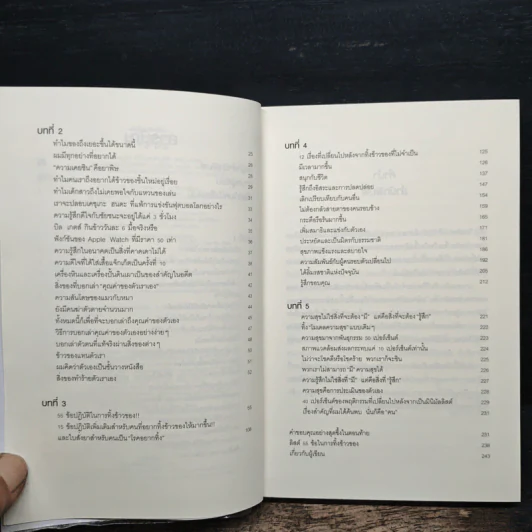 บทที่ 2
ทำไมของถึงเยอะขึ้นได้ขนาดนี้
ผมมีทุกอย่างที่อยากได้
"ความเคยชิน" คืออาพิษ
ทำไมคนเราถึงอยากได้ข้าวของชิ้นใหม่อยู่เรื่อย
ทำไมเด็กสาวถึงไม่เคยพอใจกับแหวนของเล่น
เราจะปลอบเคซุเกะ ฮนดะ ที่แพ้การแข่งขันฟุตบอลโลกอย่างไร
ความรู้สึกดีใจกับชัยชนะจะอยู่ได้แค่ 3 ชั่วโมง
บิล เกตส์ กินข้าววันละ 6 มื้อจริงหรือ
ฟังก์ชันของ Apple Watch ที่มีราคา 50 เท่า
ความรู้สึกในอนาคตเป็นสิ่งที่คาดเดาไม่ได้
ความดีใจที่ได้ใส่เสื้อแจ็กเก็ตเป็นครั้งที่ 10
เครื่องหินและเครื่องปั้นดินเผาเป็นของสำคัญในอดีต
สิ่งของที่บอกเล่า "คุณค่าของตัวเราเอง"
ความสันโดษของแมวกับหมา
ยังมีคนฆ่าตัวตายจำนวนมาก
ทั้งหมดนี้ก็เพื่อที่จะบอกเล่าถึงคุณค่าของตัวเอง
วิธีการบอกเล่าคุณค่าของตัวเองอย่างง่ายๆ
บอกเล่าตัวตนที่แท้จริงผ่านสิ่งของต่างๆ
ข้าวของแทนตัวเรา
ผมคิดว่าตัวเองเป็นชั้นวางหนังสือ
สิ่งของที่ทำร้ายตัวเราเอง
บทที่ 3
55 ข้อปฏิบัติในการทิ้งข้าวของ!!
15 ข้อปฏิบัติเพิ่มเติมสำหรับคนที่อยากทิ้งข้าวของให้มากขึ้น!!
และใบสั่งยาสำหรับคนเป็น "โรคอยากทิ้ง"
บทที่ 4
12 เรื่องที่เปลี่ยนไปหลังจากทิ้งข้าวของที่ไม่จำเป็น 125
มีเวลามากขึ้น
สนุกกับชีวิต
รู้สึกถึงอิสระและการปลดปล่อย 147
เลิกเปรียบเทียบกับคนอื่น
ไม่ต้องกลัวสายตาของคนรอบข้าง
กระตือรือร้นมากขึ้น
เพิ่มสมาธิและแข่งกับตัวเอง
ประหยัดและเป็นมิตรกับธรรมชาติ
สุขภาพแข็งแรงและสบายใจ
ความสัมพันธ์กับผู้คนรอบตัวเปลี่ยนไป
ได้ลิ้มรสชาติแห่งปัจจุบัน
รู้สึกขอบคุณ
บทที่ 5
ความสุขไม่ใช่สิ่งที่จะต้อง "มี" แต่คือสิ่งที่จะต้อง "รู้สึก" 221
ทิ้ง "โมเดลความสุข" แบบเดิมๆ
ความสุขมาจากพันธุกรรม 50 เปอร์เซ็นต์
สภาพแวดล้อมส่งผลกระทบแค่ 10 เปอร์เซ็นต์เท่านั้น
ไม่ว่าจะโชคดีหรือโชคร้าย พวกเราก็จะชิน
พวกเราไม่สามารถ "มี" ความสุขได้
ความรู้สึกไม่ใช่สิ่งที่ "มี" แต่คือสิ่งที่ "รู้สึก"
ความสุขคือการประเมินของตัวเอง
40 เปอร์เซ็นต์ของพฤติกรรมที่เปลี่ยนไปหลังจากเป็นมินิมัลลิสต์
เรื่องสำคัญที่ผมได้ค้นพบ นั่นก็คือ "คน"
คำขอบคุณอย่างสุดซึ้งในตอนท้าย
ลิสต์ 55 ข้อในการทิ้งข้าวของ
เกี่ยวกับผู้เขียน 243